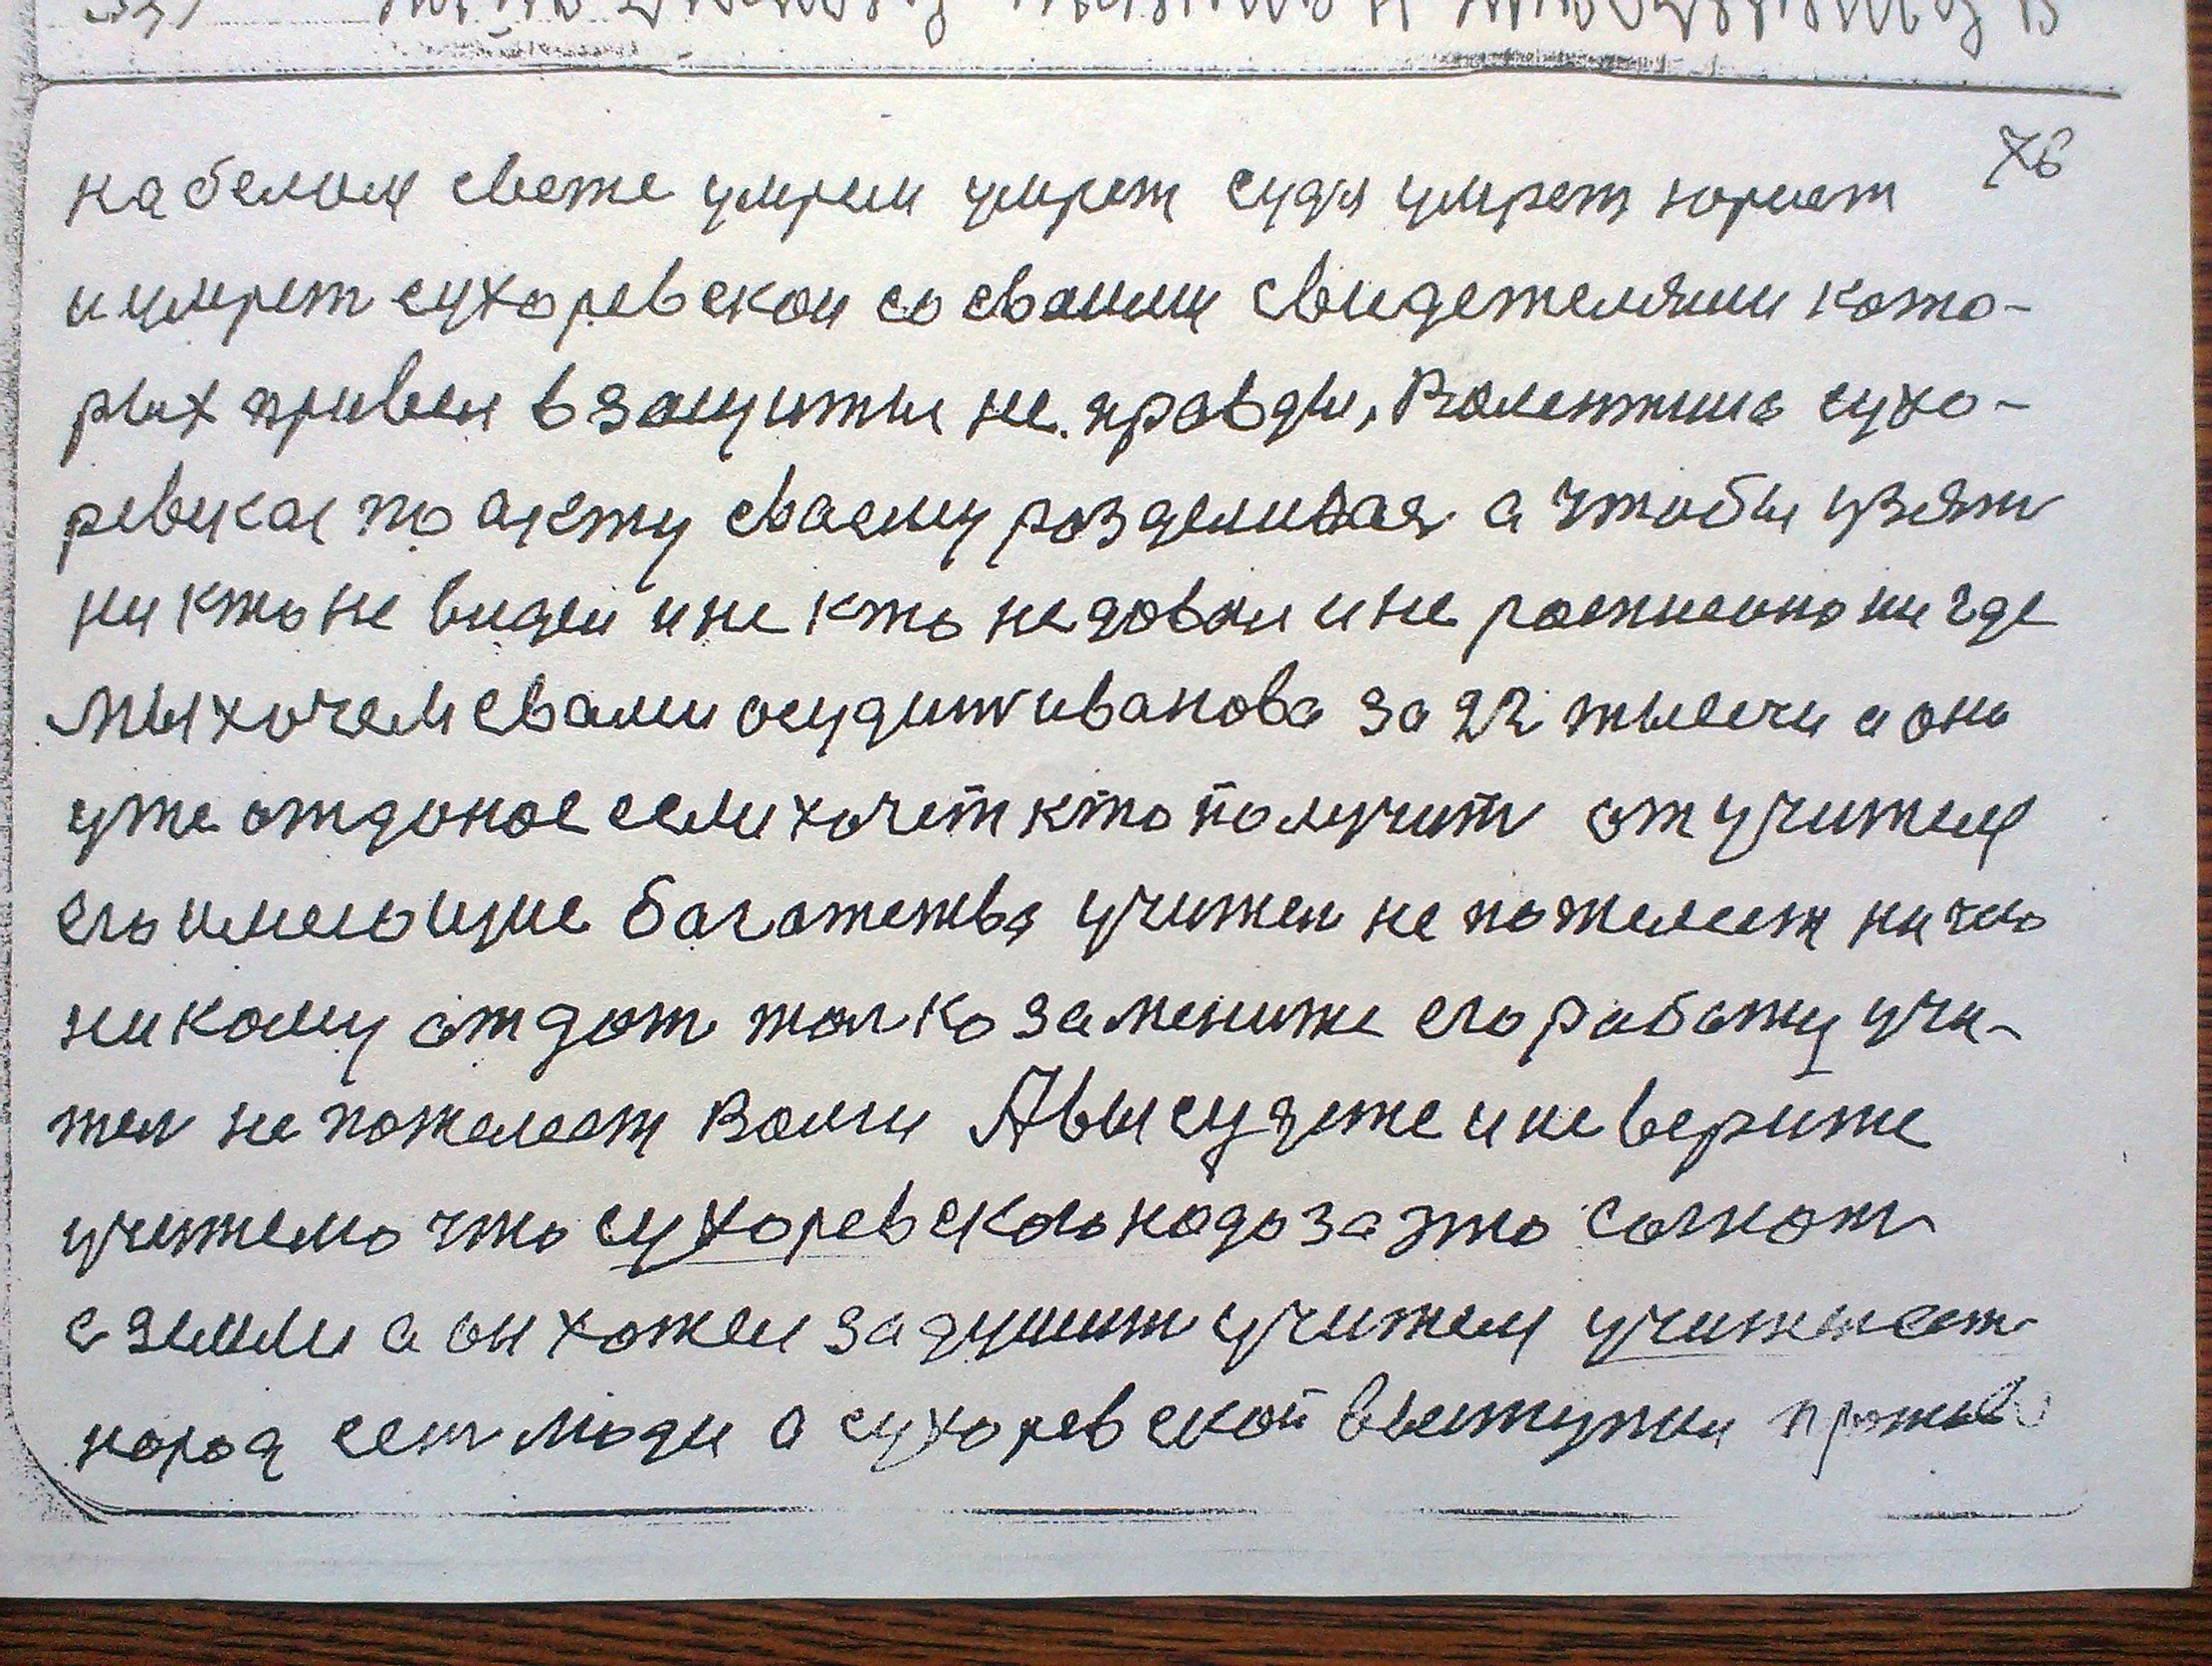 76
на белом свете умрем умрет судя умрет юрист
и умрет сухоревскои со своими свидетелями кото-
рых привел в защиты не правды, Валентина сухо-
ревская по акту своему разделивая а чтобы узят
ни кто не видел и не кто не довал и не росписано ни где
Мы хочем свами осудит иванова за 22 тысечи а они
уже отданое если хочет кто получит от учителя
его имеющие багатства учител не пожелеет ни чего
ни кому отдат толко замените его работу учи-
тел не пожелеет Вами А вы судите и не верите
учителю что сухоревскою надо за это согнат
с земли а он хотел задушит учителя учител ест
народ ест люди а сухоревской выступил против